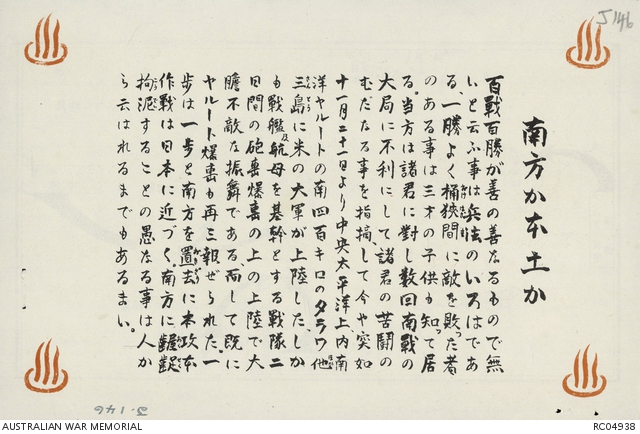 J146
南方か本土か
百戰百勝が善の善なるもので無
いと云ふ事は兵法のいろはであ
る、一勝よく桶狹間に敵を敗った者
のある事は三才の子供も知って居
る。当方は諸君に対し数回南戰の
大局に不利にして、諸君の苦鬪の
むだなる事を指摘して今や突如
十一月二十一日より中央太平洋上、内南
洋ヤルートの南四百キロのタラワ他
三島に米の大軍が上陸した。しか
も戰艦及航母を基幹とする戰隊二
日間の砲撃爆撃の上の上陸で大
膽不敵な振舞である、而して既に
ヤルート爆撃も再三報ぜられた。一
歩は一歩と南方を置去に本政本
作戰は日本に近づく。南方に齷齪
拘泥することの愚なる事は人か
ら云はれるまでもあるまい。
J.146
AUSTRALIAN WAR MEMORIAL
RC04938